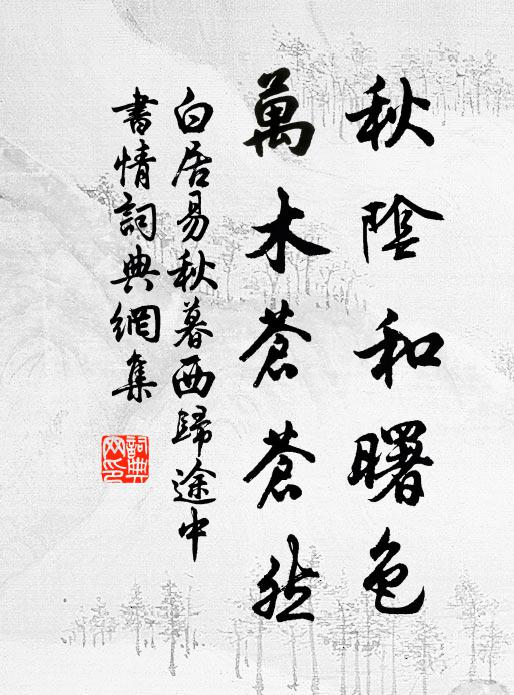 秋陰和曙色
萬木蒼蒼然
白居易秋暮西歸途中
書情詞典網集
詞典网印